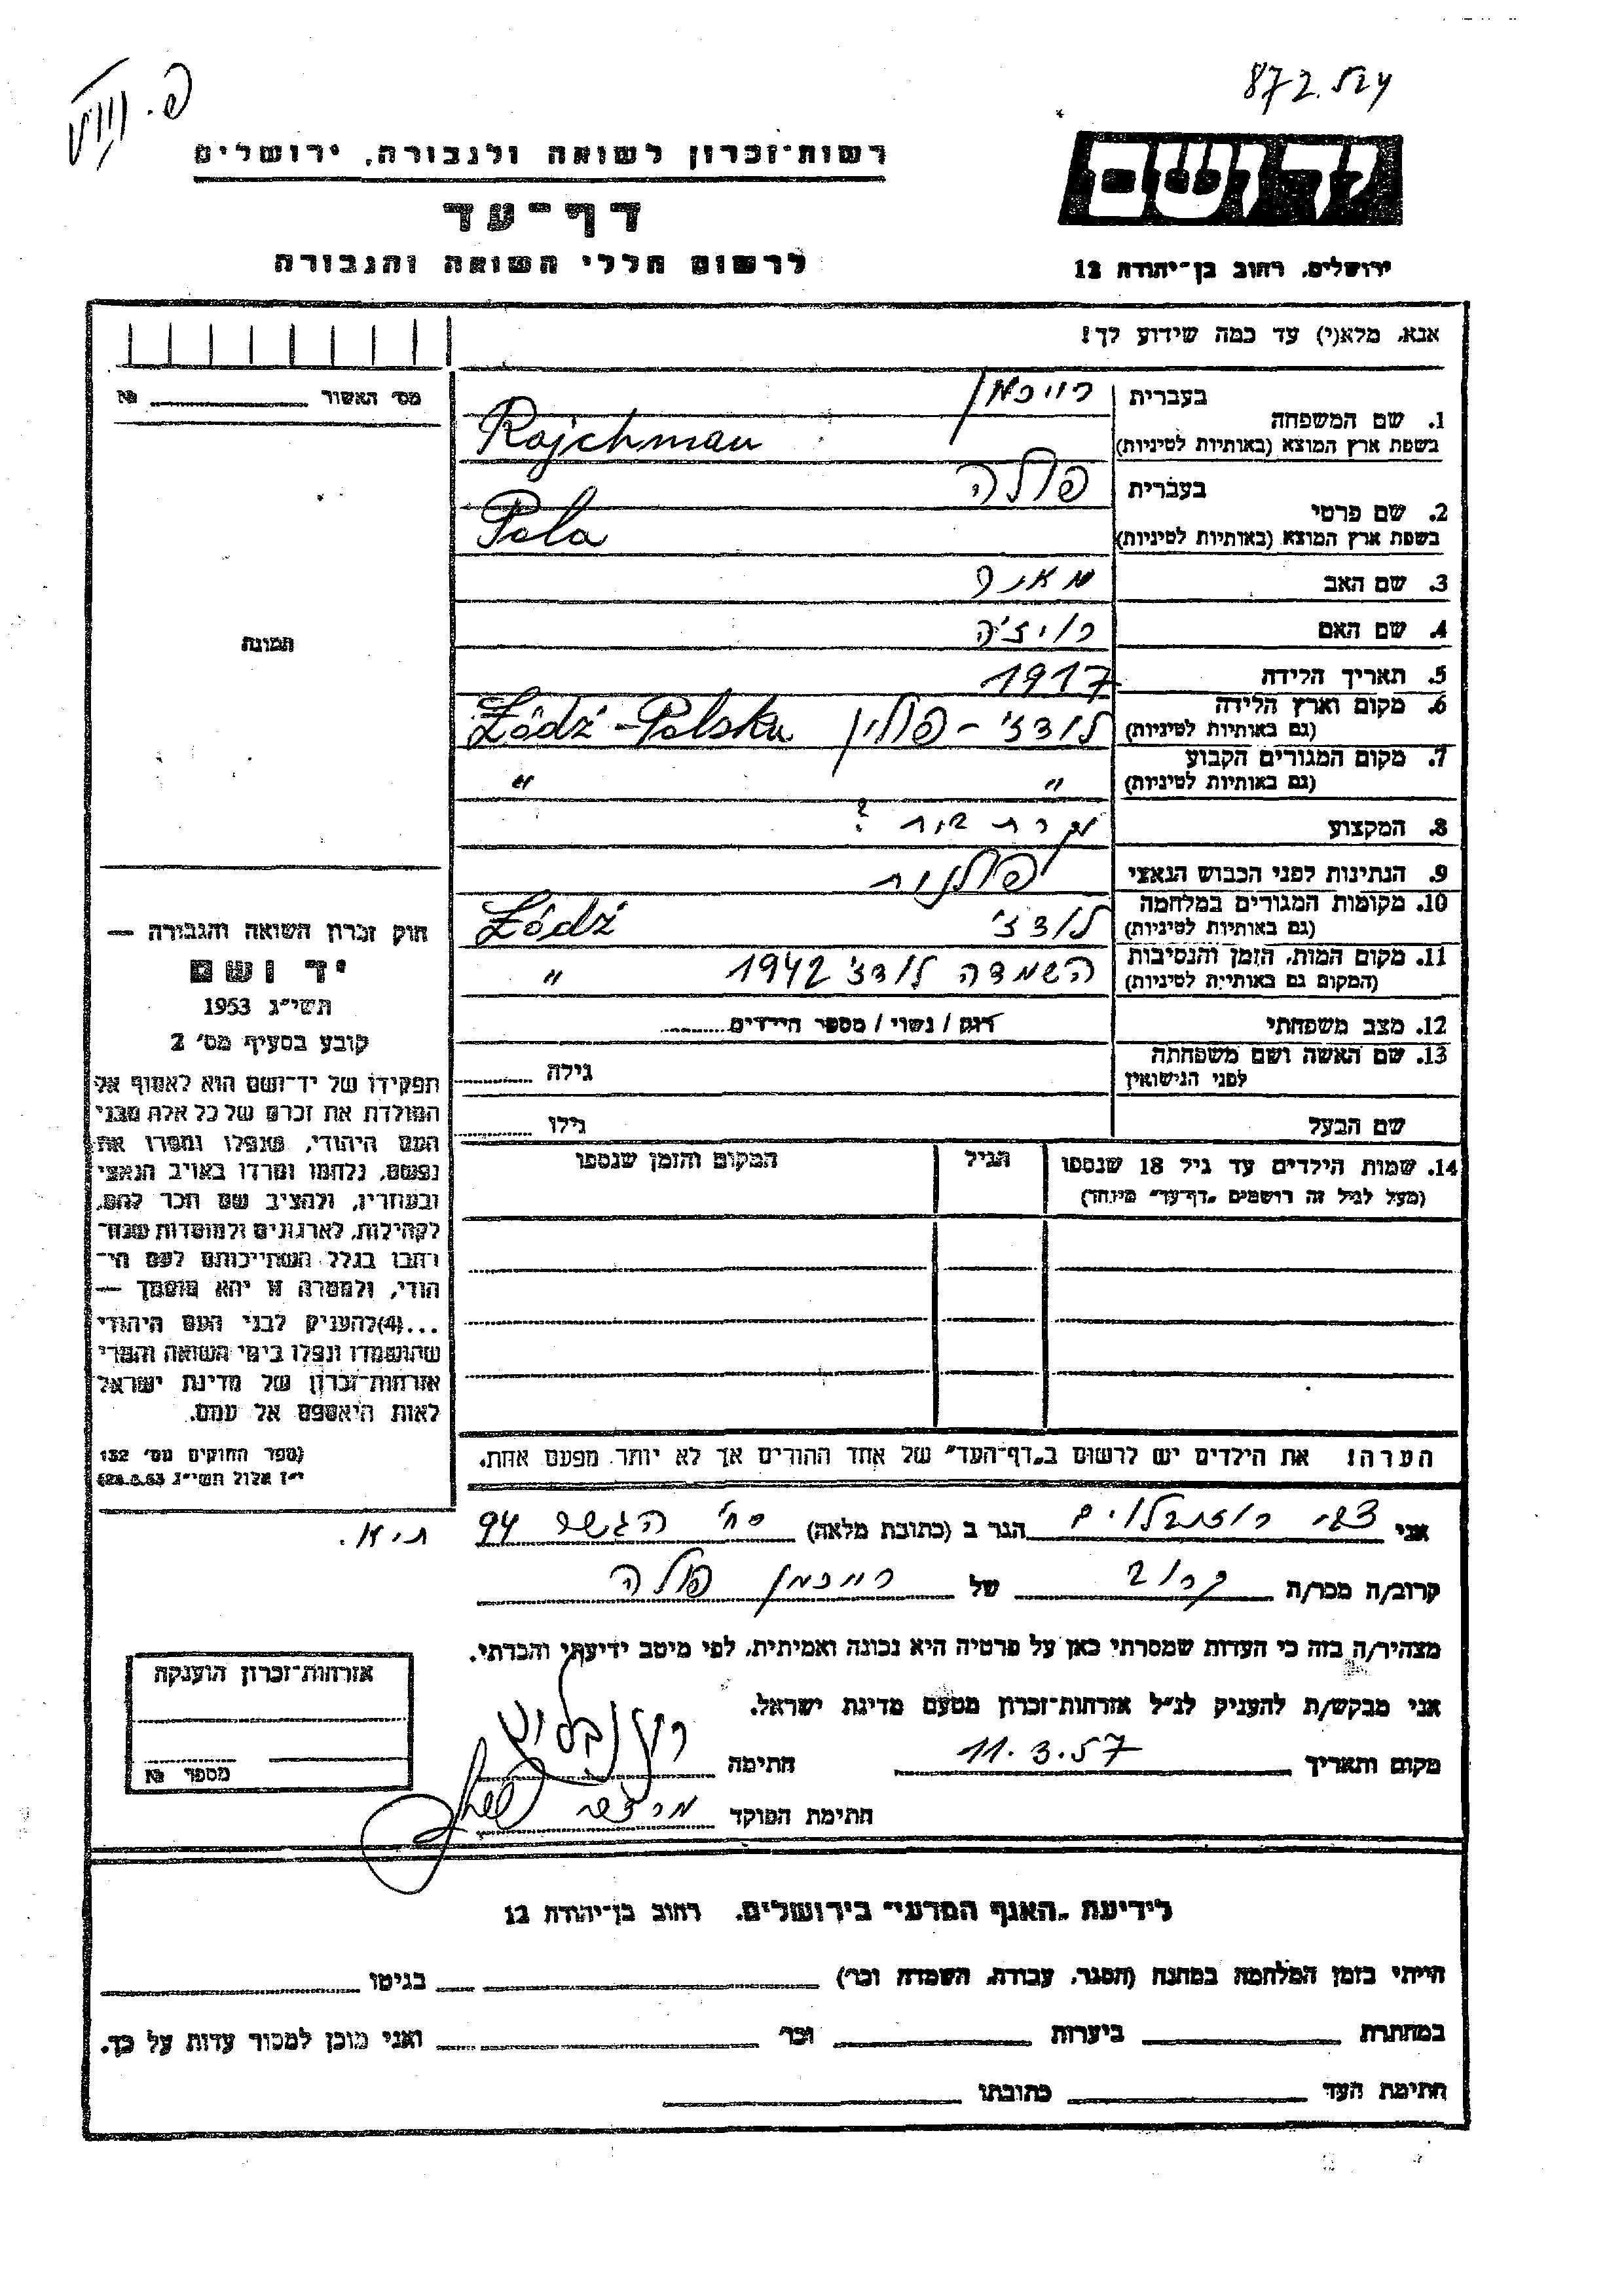 872.524
רשות־זכרון לשואה ולגבורה, ירושלים
דף־עד
לרשום חללי השואה והגבורה
יד ושם
ירושלים, רחוב בן־יהודה 12
אנא, מלא(י) עד כמה שידוע לך!
מס' האשור №
1. שם המשפחה
בעברית רייכמן
בשפת ארץ המוצא (באותיות לטיניות) Rajchman
2. שם פרטי
בעברית פולה
בשפת ארץ המוצא (באותיות לטיניות) Pola
3. שם האב
4. שם האם רוז'ה
5. תאריך הלידה 1917
6. מקום וארץ הלידה
(גם באותיות לטיניות) לודז' - פולין Łódź - Polska
7. מקום המגורים הקבוע
(גם באותיות לטיניות) " "
8. המקצוע
9. הנתינות לפני הכבוש הנאצי פולנית
10. מקומות המגורים במלחמה
(גם באותיות לטיניות) לודז' Łódź
11. מקום המות, הזמן והנסיבות
(המקום גם באותיות לטיניות) השמדה לודז' 1942 "
12. מצב משפחתי רווק / נשוי / מספר הילדים
13. שם האשה ושם משפחתה
לפני הנישואין גילה
שם הבעל גילו
14. שמות הילדים עד גיל 18 שנספו הגיל המקום והזמן שנספו
(מעל לגיל זה רושמים "דף־עד" מיוחד)
הערה! את הילדים יש לרשום ב"דף־העד" של אחד ההורים אך לא יותר מפעם אחת.
תמונה
חוק זכרון השואה והגבורה —
יד ושם
תשי"ג 1953
קובע בסעיף מס' 2
תפקידו של יד־ושם הוא לאסוף אל
המולדת את זכרם של כל אלה מבני
העם היהודי, שנפלו ומסרו את
נפשם, נלחמו ומרדו באויב הנאצי
ובעוזריו, ולהציב שם וזכר להם,
לקהילות, לארגונים ולמוסדות שנח־
רבו בגלל השתייכותם לעם הי־
הודי, ולמטרה זו יהא מוסמך —
...(4)להעניק לבני העם היהודי
שהושמדו ונפלו בימי השואה והמרי
אזרחות־זכרון של מדינת ישראל
לאות היאספם אל עמם.
(ספר החוקים מס' 132
י"ז אלול תשי"ג 28.8.53)
אני צבי רוזנבלום הגר ב (כתובת מלאה) רח' הגשר 94 ת"א.
קרוב/ה מכר/ה קרוב של רייכמן פולה
מצהיר/ה בזה כי העדות שמסרתי כאן על פרטיה היא נכונה ואמיתית, לפי מיטב ידיעתי והכרתי.
אני מבקש/ת להעניק לנ"ל אזרחות־זכרון מטעם מדינת ישראל.
מקום ותאריך 11.3.57 חתימה
חתימת הפוקד
אזרחות־זכרון הוענקה
מספר №
לידיעת "האגף המדעי" בירושלים, רחוב בן־יהודה 12
הייתי בזמן המלחמה במחנה (הסגר, עבודה, השמדה וכו') בגיטו
במחתרת ביערות וכו' ואני מוכן למסור עדות על כך.
חתימת העד כתובתו